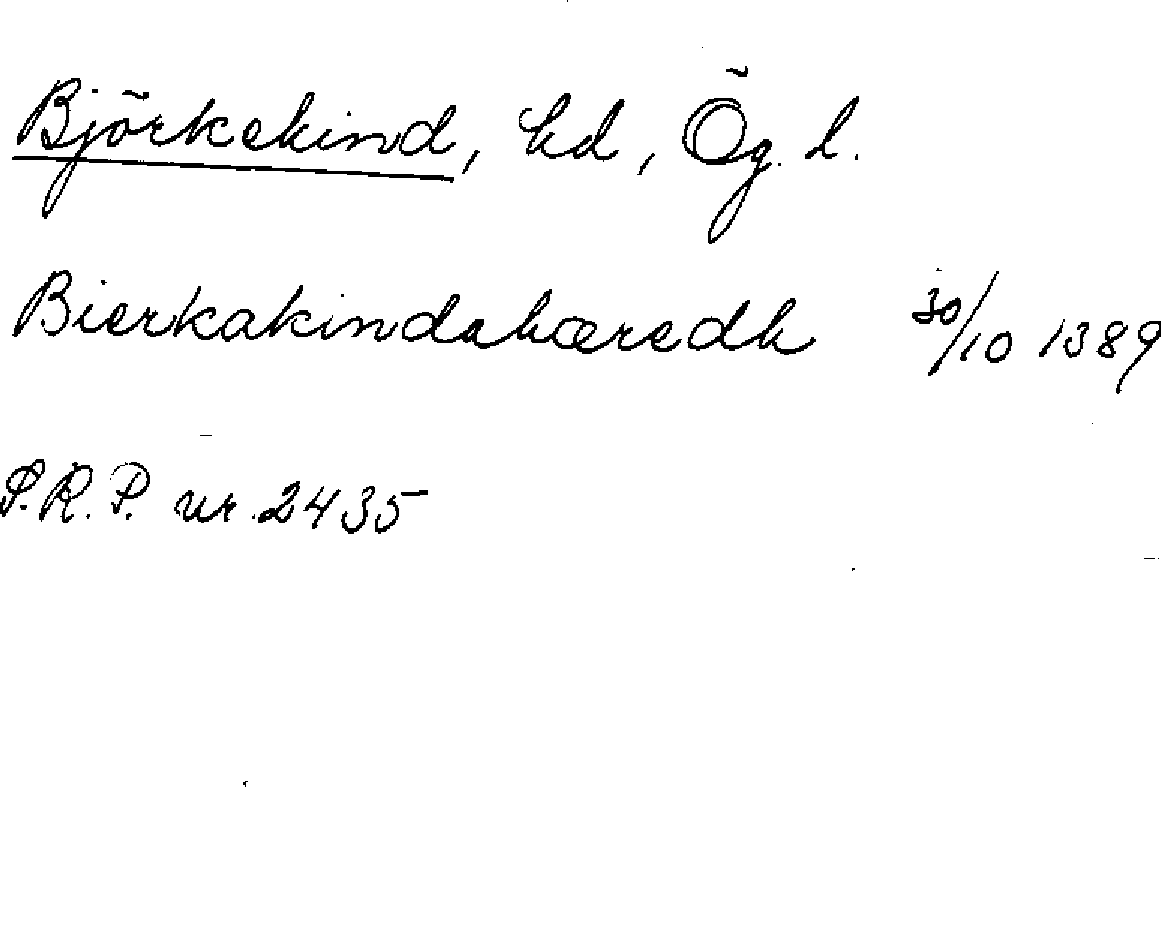 Björkekind, hd, Ög. l.
Bierkakindahæredh 30/10 1389
S.R.P. nr. 2435